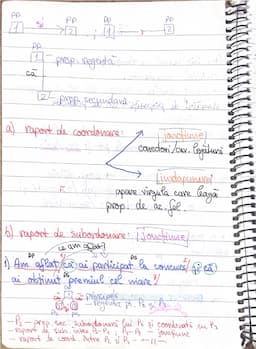 PP PP PP PP
1 și 2 , ; 1 2
PP
1 - prop. regentă
că
2 - prop. secundară
a) raport de coordonare: joncțiune
conectori/cuv. legătură
juxtapunere
apare virgula care leagă
prop. de ac. fel.
b) raport de subordonare: joncțiune
ce am aflat?
1) Am aflat că ai participat la concurs și că
ai obținut premiul cel mare.
P2 - prop. sec. subordonată lui P1 și coordonată cu P3
raport de sub. între
raport de coord. între P2 și P3 - 11 -